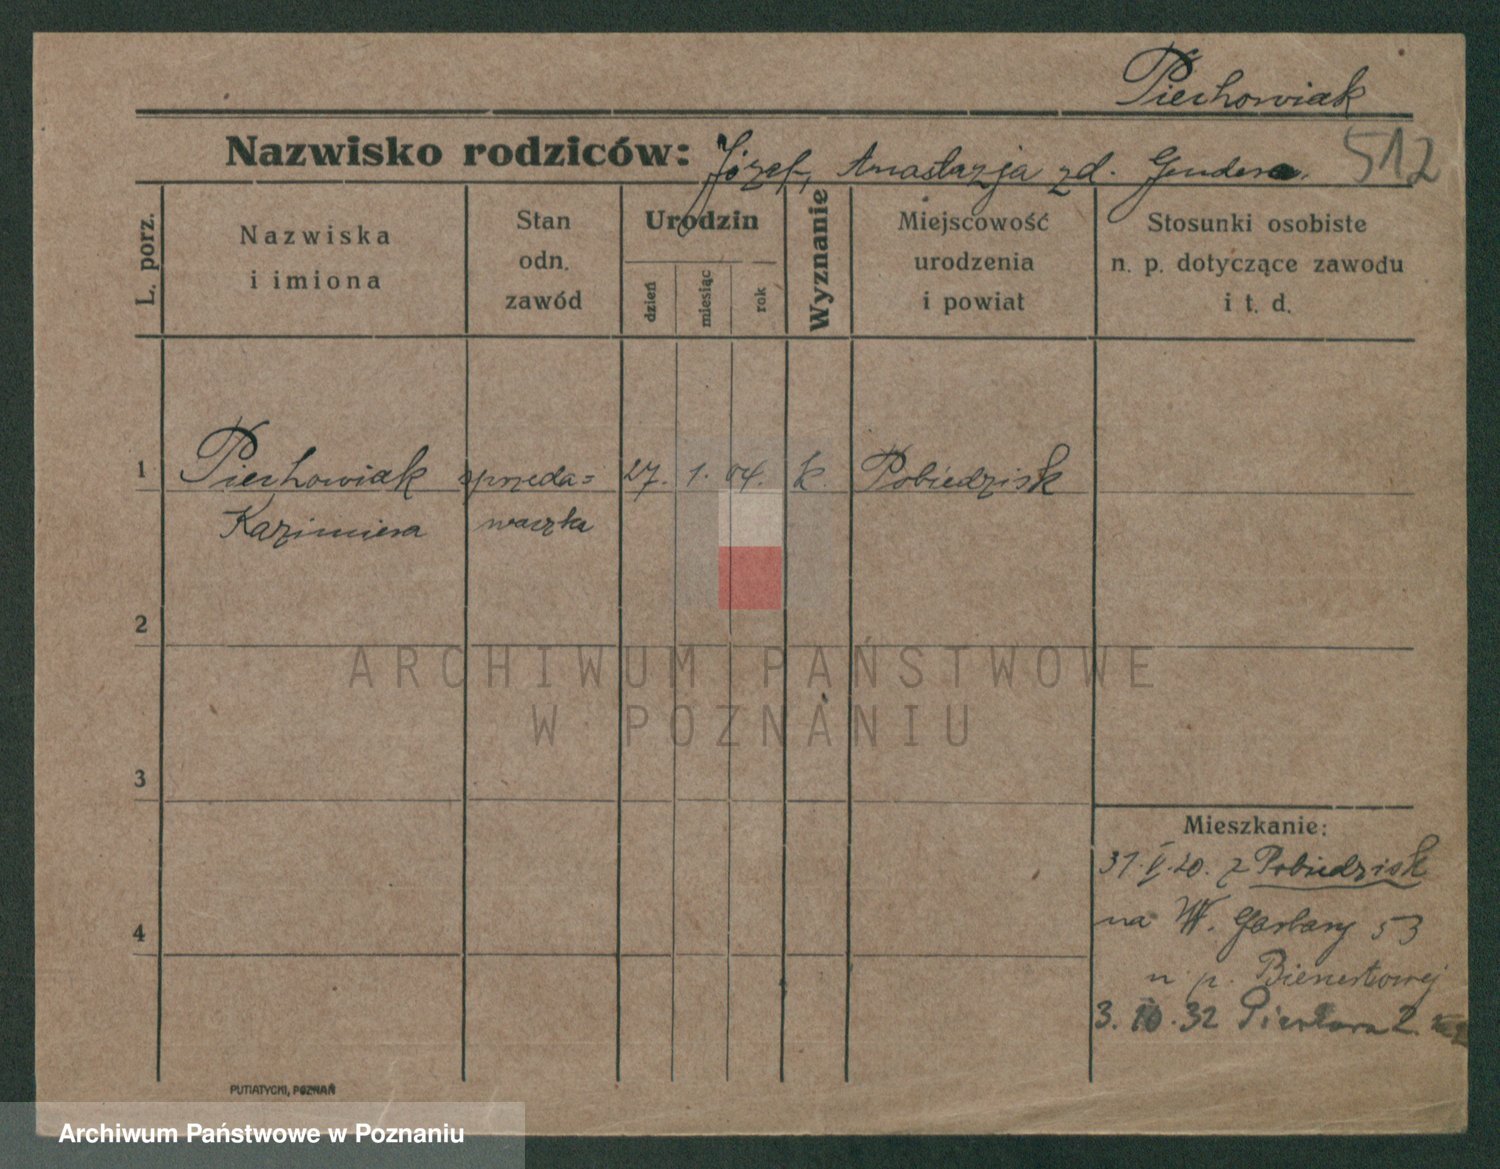 Piechowiak
Nazwisko rodziców: Józef, Anastazja zd. 512
L. porz.
Nazwiska
i imiona
Stan
odn.
zawód
Urodzin
dzień
miesiąc
rok
Wyznanie
Miejscowość
urodzenia
i powiat
Stosunki osobiste
n. p. dotyczące zawodu
i t. d.
1 Piechowiak sprzeda= 27. 1. 04. k. Pobiedzisk
Kazimiera waczka
2
ARCHIWUM PAŃSTWOWE
W POZNANIU
3
Mieszkanie:
31.V.20. z Pobiedzisk
na W. Garbary 53
4
u p.
3. 32 2
PUTIATYCKI, POZNAŃ
Archiwum Państwowe w Poznaniu